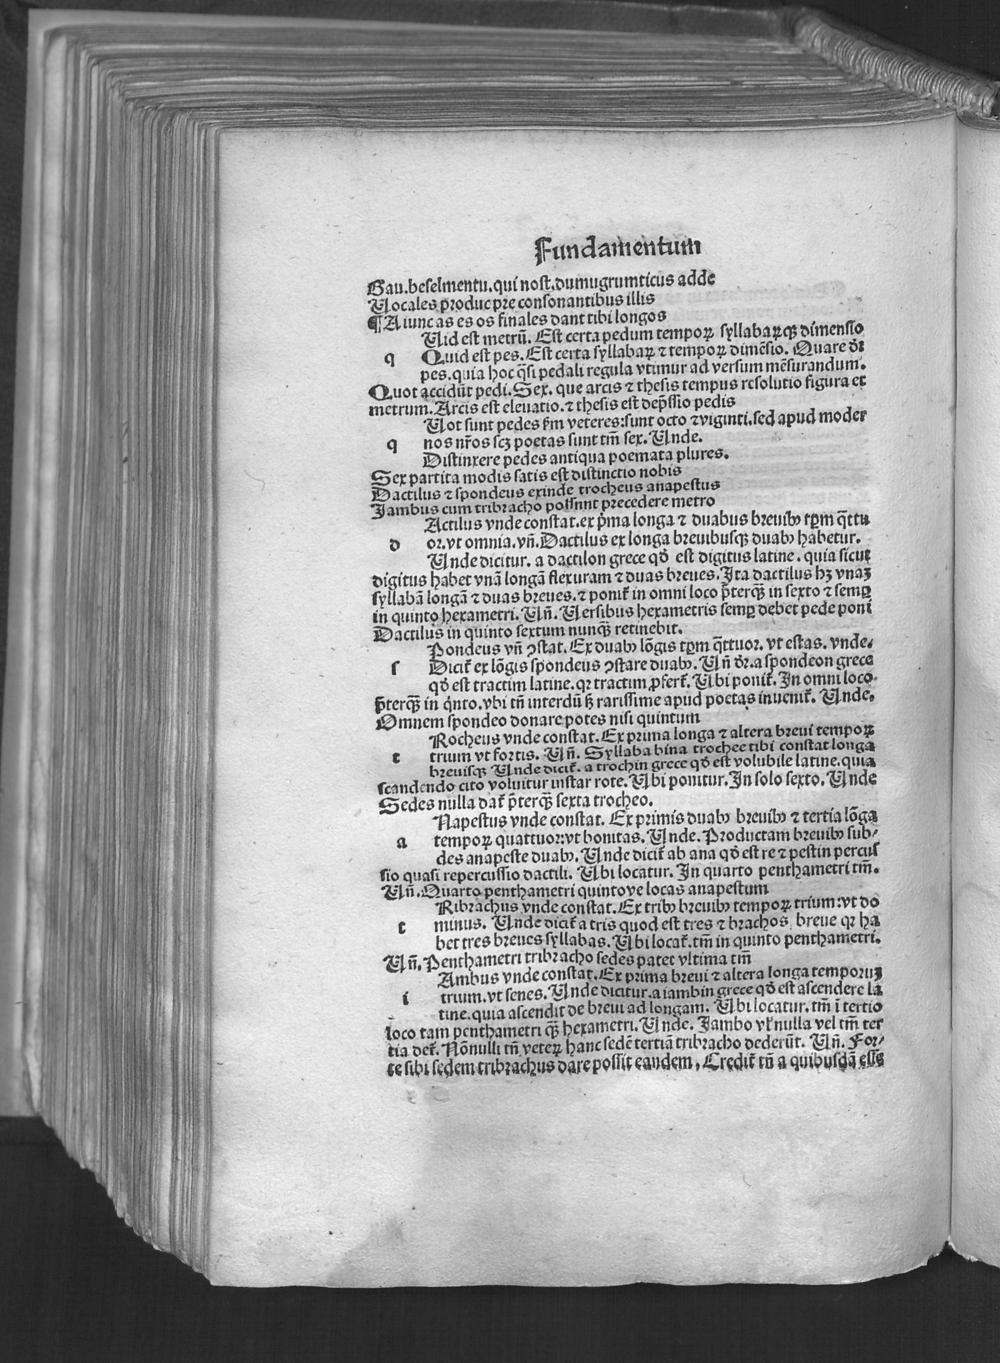 Fundamentum
Gau.beselmentu.qui nost.dumugrumticus adde
Vocales produc pre consonantibus illis
¶ A iunc as es os finales dant tibi longos
Uid est metrū. Est certa pedum tempoꝝ syllabaꝝqꝫ dimensio
q Quid est pes. Est certa syllabaꝝ ⁊ tempoꝝ dimēsio. Quare dr̄
pes.quia hoc q̄si pedali regula vtimur ad versum mēsurandum.
Quot accidūt pedi. Sex. que arcis ⁊ thesis tempus resolutio figura et
metrum. Arcis est eleuatio.⁊ thesis est dep̄ssio pedis
Uot sunt pedes ẜm veteres:sunt octo ⁊viginti.sed apud moder
q nos nr̄os scꝫ poetas sunt tm̄ sex. Unde.
Distinxere pedes antiqua poemata plures.
Sex partita modis satis est distinctio nobis
Dactilus ⁊ spondeus exinde trocheus anapestus
Jambus cum tribracho possunt precedere metro
Actilus vnde constat.ex p̄ma longa ⁊ duabus breuibꝰ tꝑm q̄ttu
d or.vt omnia.vn̄.Dactilus ex longa breuibusqꝫ duabꝰ habetur.
Unde dicitur. a dactilon grece qd̄ est digitus latine. quia sicut
digitus habet vnā longā flexuram ⁊ duas breues. Ita dactilus hꝫ vnaꝫ
syllabā longā ⁊ duas breues.⁊ ponit᷑ in omni loco p̄terqꝫ̄ in sexto ⁊ semꝑ
in quinto hexametri. Un̄. Versibus hexametris semꝑ debet pede poni
Dactilus in quinto sextum nunqꝫ̄ retinebit.
Pondeus vn̄ ꝯstat. Ex duabꝰ lōgis tꝑm q̄ttuor. vt estas. vnde.
s Dicit᷑ ex lōgis spondeus ꝯstare duabꝰ. Un̄ dr̄.a spondeon grece
qd̄ est tractim latine.qꝛ tractim ꝓfert᷑. Ubi ponit᷑. In omni loco.
p̄terqꝫ̄ in q̇nto.vbi tn̄ interdū ꝫ rarissime apud poetas inuenit᷑. Unde.
Omnem spondeo donare potes nisi quintum
Rocheus vnde constat. Ex prima longa ⁊ altera breui tempoꝝ
t trium vt fortis. Un̄. Syllaba bina trochee tibi constat longa
breuisqꝫ Unde dicit᷑. a trochin grece qd̄ est volubile latine.quia
scandendo cito voluitur instar rote. Ubi ponitur. In solo sexto. Unde
Sedes nulla dat᷑ p̄terqꝫ̄ sexta trocheo.
Napestus vnde constat. Ex primis duabꝰ breuibꝰ ⁊ tertia lōga
a tempoꝝ quattuor:vt bonitas. Unde. Productam breuibꝰ sub⸗
des anapeste duabꝰ. Unde dicit᷑ ab ana qd̄ est re ⁊ pestin percus
sio quasi repercussio dactili. Ubi locatur. In quarto penthametri tm̄.
Un̄.Quarto penthametri quintove locas anapestum
Ribrachus vnde constat.Ex tribꝰ breuibꝰ tempoꝝ trium:vt do
t minus. Unde dicit᷑ a tris quod est tres ⁊ brachos breue qꝛ ha
bet tres breues syllabas. Ubi locat᷑.tm̄ in quinto penthametri.
Un̄.Penthametri tribracho sedes patet vltima tm̄
Ambus vnde constat.Ex prima breui ⁊ altera longa temporuꝫ
i trium.vt senes. Unde dicitur.a iambin grece qd̄ est ascendere la
tine.quia ascendit de breui ad longam. Ubi locatur. tm̄ ī tertio
loco tam penthametri qꝫ̄ hexametri. Unde. Jambo vl᷑ nulla vel tm̄ ter
tia det᷑. Nōnulli tn̄ veteꝝ hanc sedē tertiā tribracho dederūt. Un̄. For⸗
te sibi sedem tribrachus dare possit eandem. Credit᷑ tn̄ a quibusdā esse